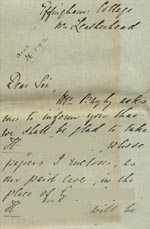 Effingham Cottage
Nr Leatherhead
Dear Sir
Mr Bayly asks
me to inform you that
we shall be glad to take
H whose
papers I enclose, as
our paid case, in the
place of
H will be